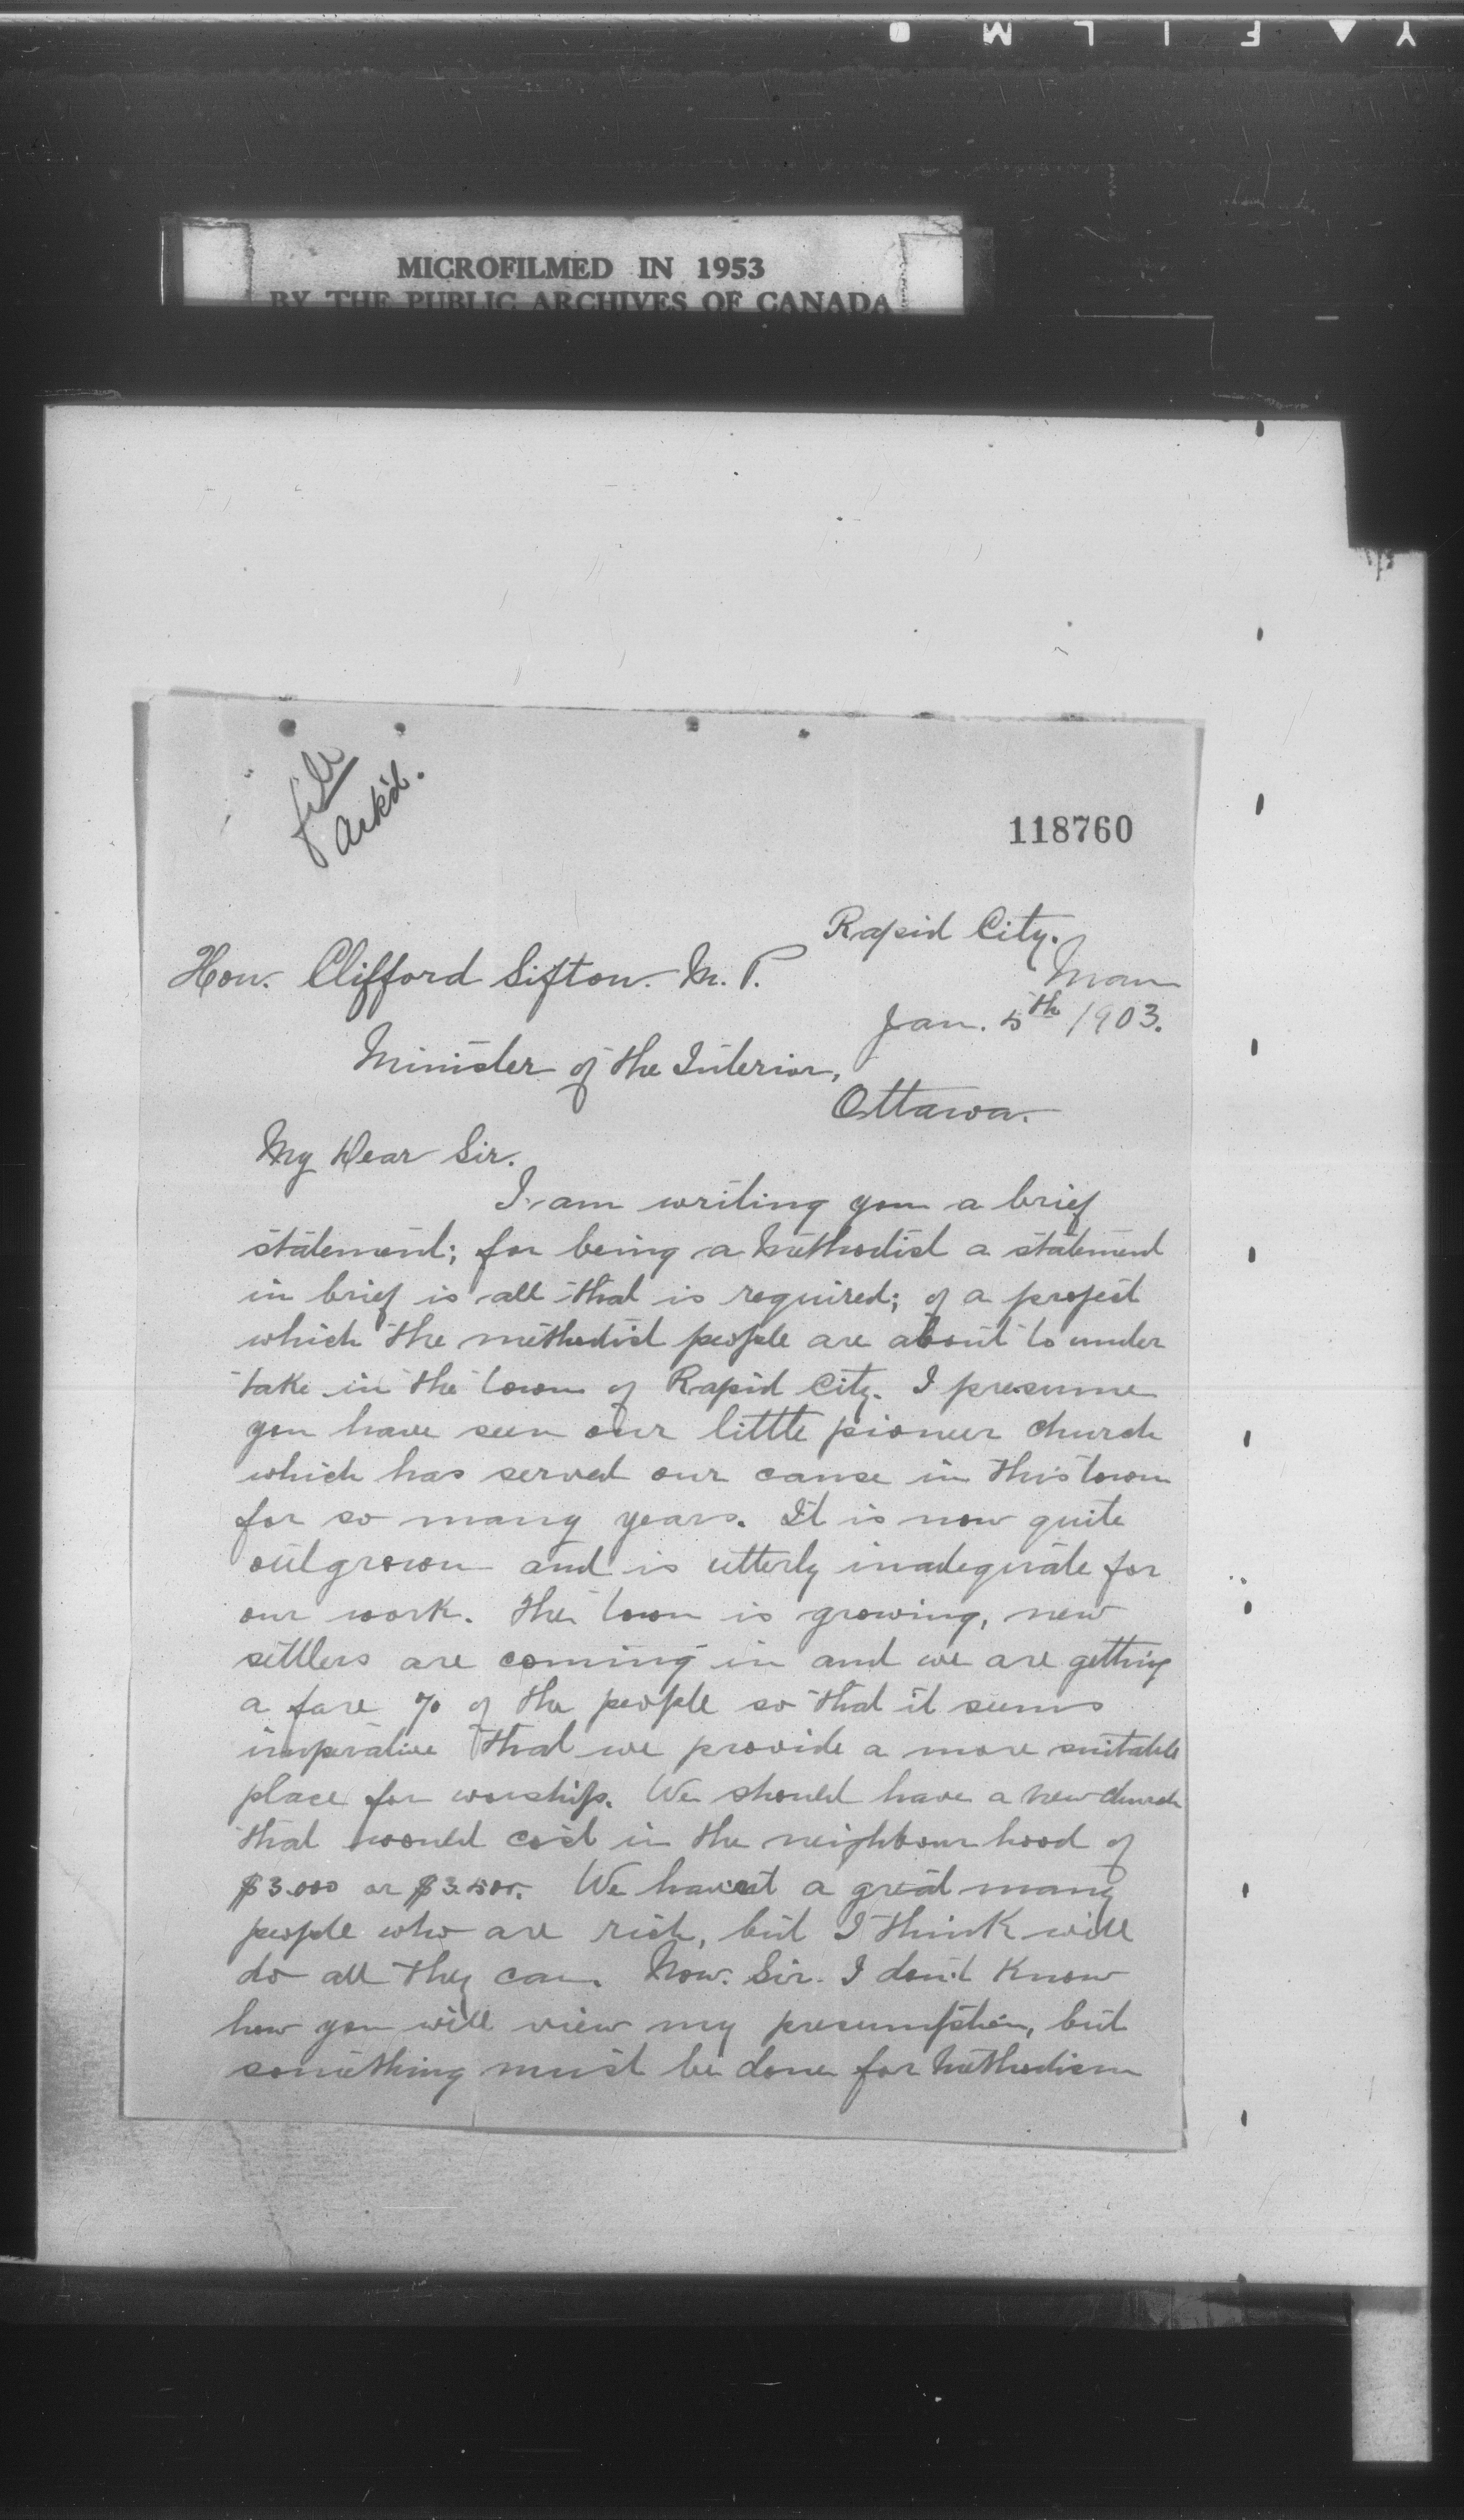 Y ▲ F I L M
MICROFILMED IN 1953
BY THE PUBLIC ARCHIVES OF CANADA
file
Ack'd.
118760
Rapid City.
Man
Hon. Clifford Sifton. M. P.
Jan. 5th 1903.
Minister of the Interior,
Ottawa.
My Dear Sir.
I am writing you a brief
statement; for being a Methodist a statement
in brief is all that is required; of a project
which the methodist people are about to under
take in the town of Rapid City. I presume
you have seen our little pioneer church
which has served our cause in this town
for so many years. It is now quite
outgrown and is utterly inadequate for
our work. The town is growing, new
settlers are coming in and we are getting
a fare % of the people so that it seems
imperative that we provide a more suitable
place for worship. We should have a new church
that would cost in the neighbour hood of
$3.000 or $3.500. We havent a great many
people who are rich, but I think will
do all they can. Now. Sir. I don't know
how you will view my presumption, but
something must be done for Methodism